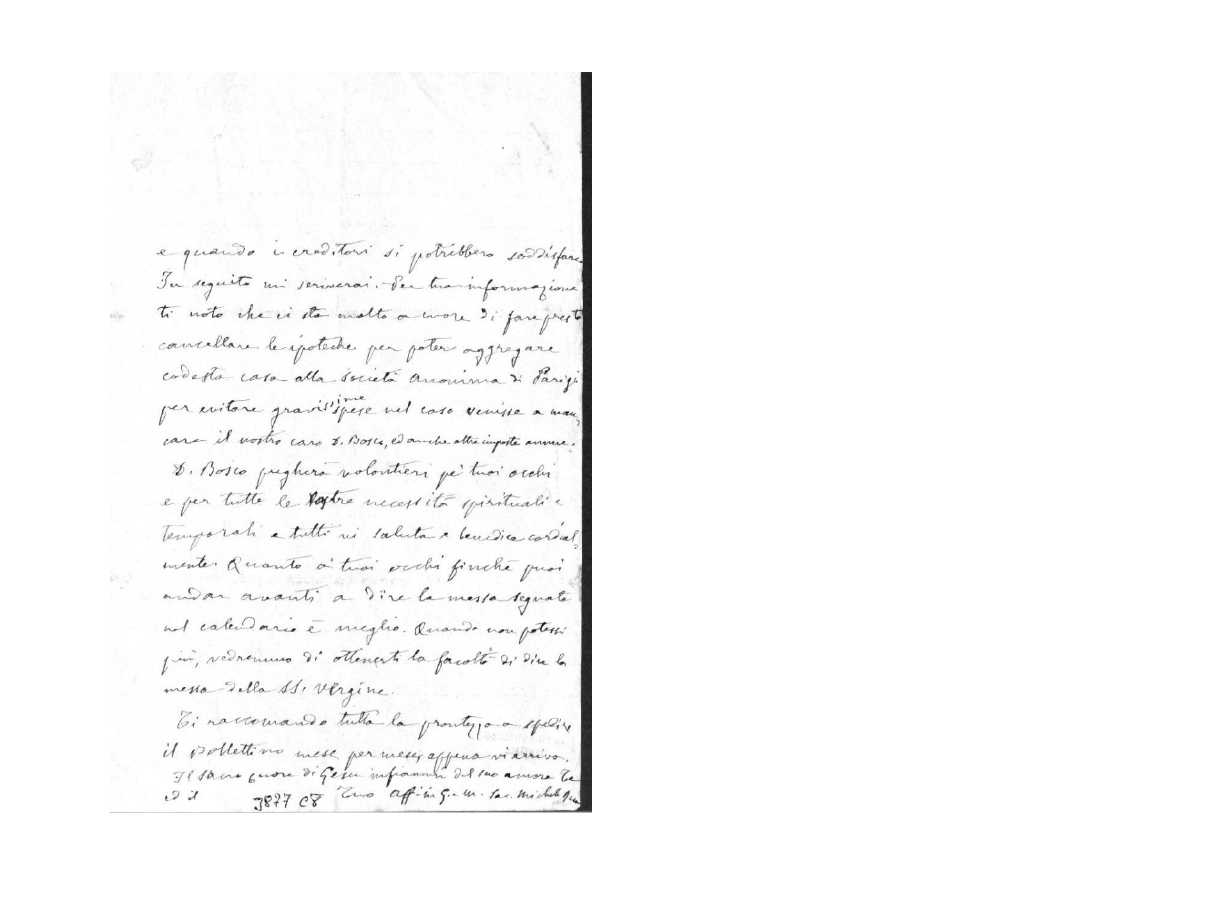 e quando i creditori si potrebbero soddisfare
In seguito mi scriverai. Per tua informazione
ti noto che ci sta molto a cuore di fare presto
cancellare le ipoteche per poter aggregare
codesta casa alla società anonima di Parigi
per evitare gravissime spese nel caso venisse a man
care il nostro caro D. Bosco, ed anche altre imposte annue.
D. Bosco pregherà volontieri pe' tuoi occhi
e per tutte le vostre necessità spirituali e
temporali e tutti vi saluta e benedice cordial
mente. Quanto a' tuoi occhi finchè puoi
andar avanti a dire la messa segnata
nel calendario è meglio. Quando non potessi
più, vedremmo di ottenerti la facoltà di dire la
messa della SS. Vergine.
Ti raccomando tutta la prontezza a spedire
il Bollettino mese per mese, appena vi arriva.
Il sacro cuore di Gesù infiammi del suo amore Te
ed il
3877 C8
Tuo Aff. in G. e M. Sac. Michele